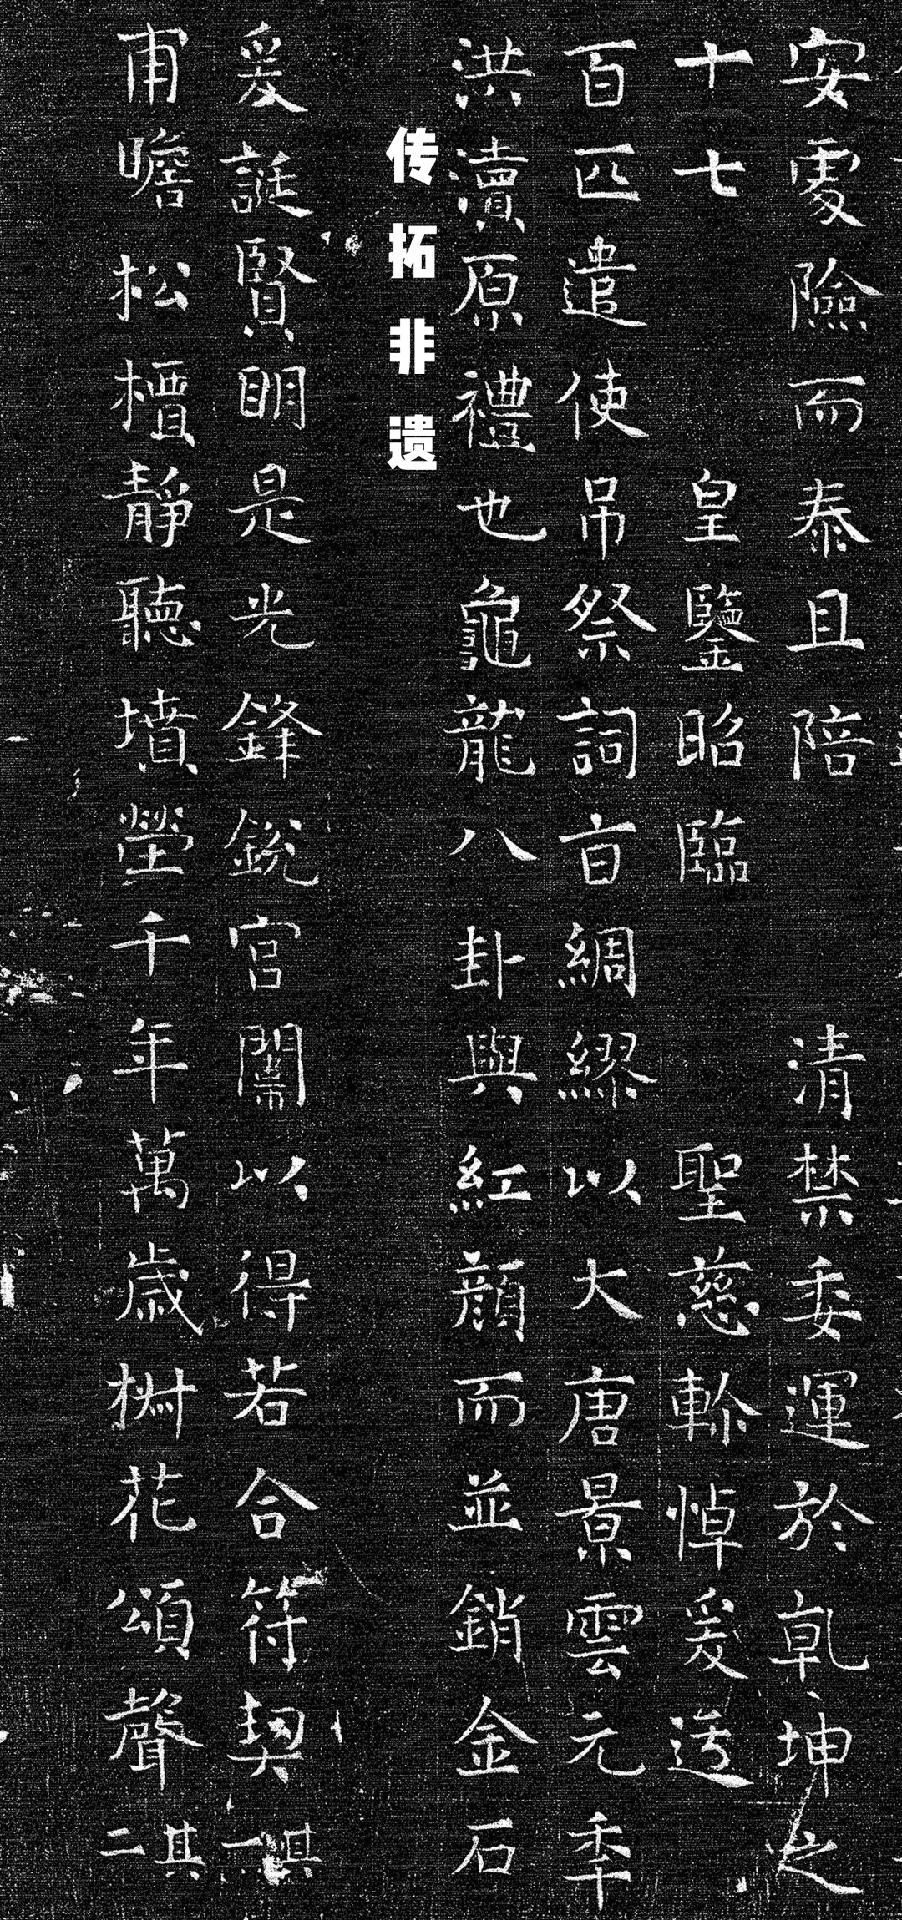 安處險而泰且陪 清禁委運於乹坤之
十七 皇鑒昭臨 聖慈軫悼爰送
百匹遣使吊祭詞旨綢繆以大唐景雲元年
洪瀆原禮也龜龍八卦與紅顔而並銷金石
传拓非遗
爰誕賢明是光鋒銳宫闈以得若合符契其一
甫瞻松檟靜聽墳塋千年萬歲椒花頌聲其二